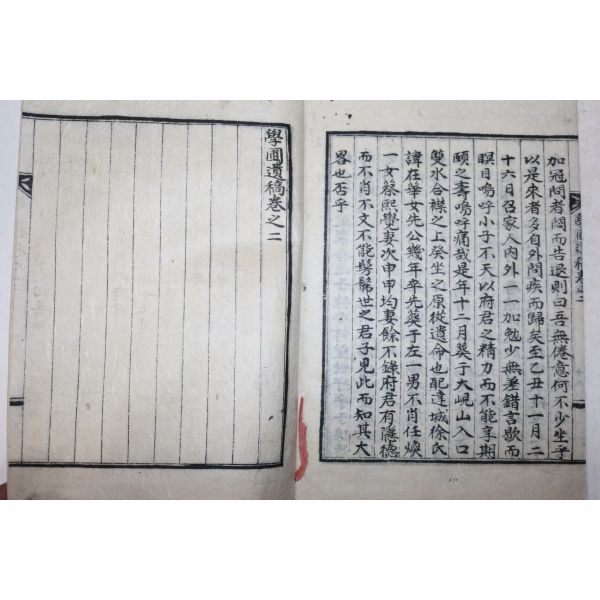 加冠問者閔而告退則曰吾無倦意何不少坐子
以是來者多自外問疾而歸矣至乙丑十一月二
十六日召家人內外一一加勉少無差錯言歇而
瞑目嗚呼小子不天以府君之精力而不能享期
頤之壽嗚呼痛哉是年十二月葬于大峴山入口
雙水合襟之上癸坐之原從遺命也配達城徐氏
諱在華女先公幾年卒先葬于左一男不肖任煥
一女蔡熙覺妻次申甲均妻餘不錄府君有隱德
而不肖不文不能髣髴世之君子見此而知其大
畧也否乎
學圃遺稿卷之二
學圃遺稿卷之二